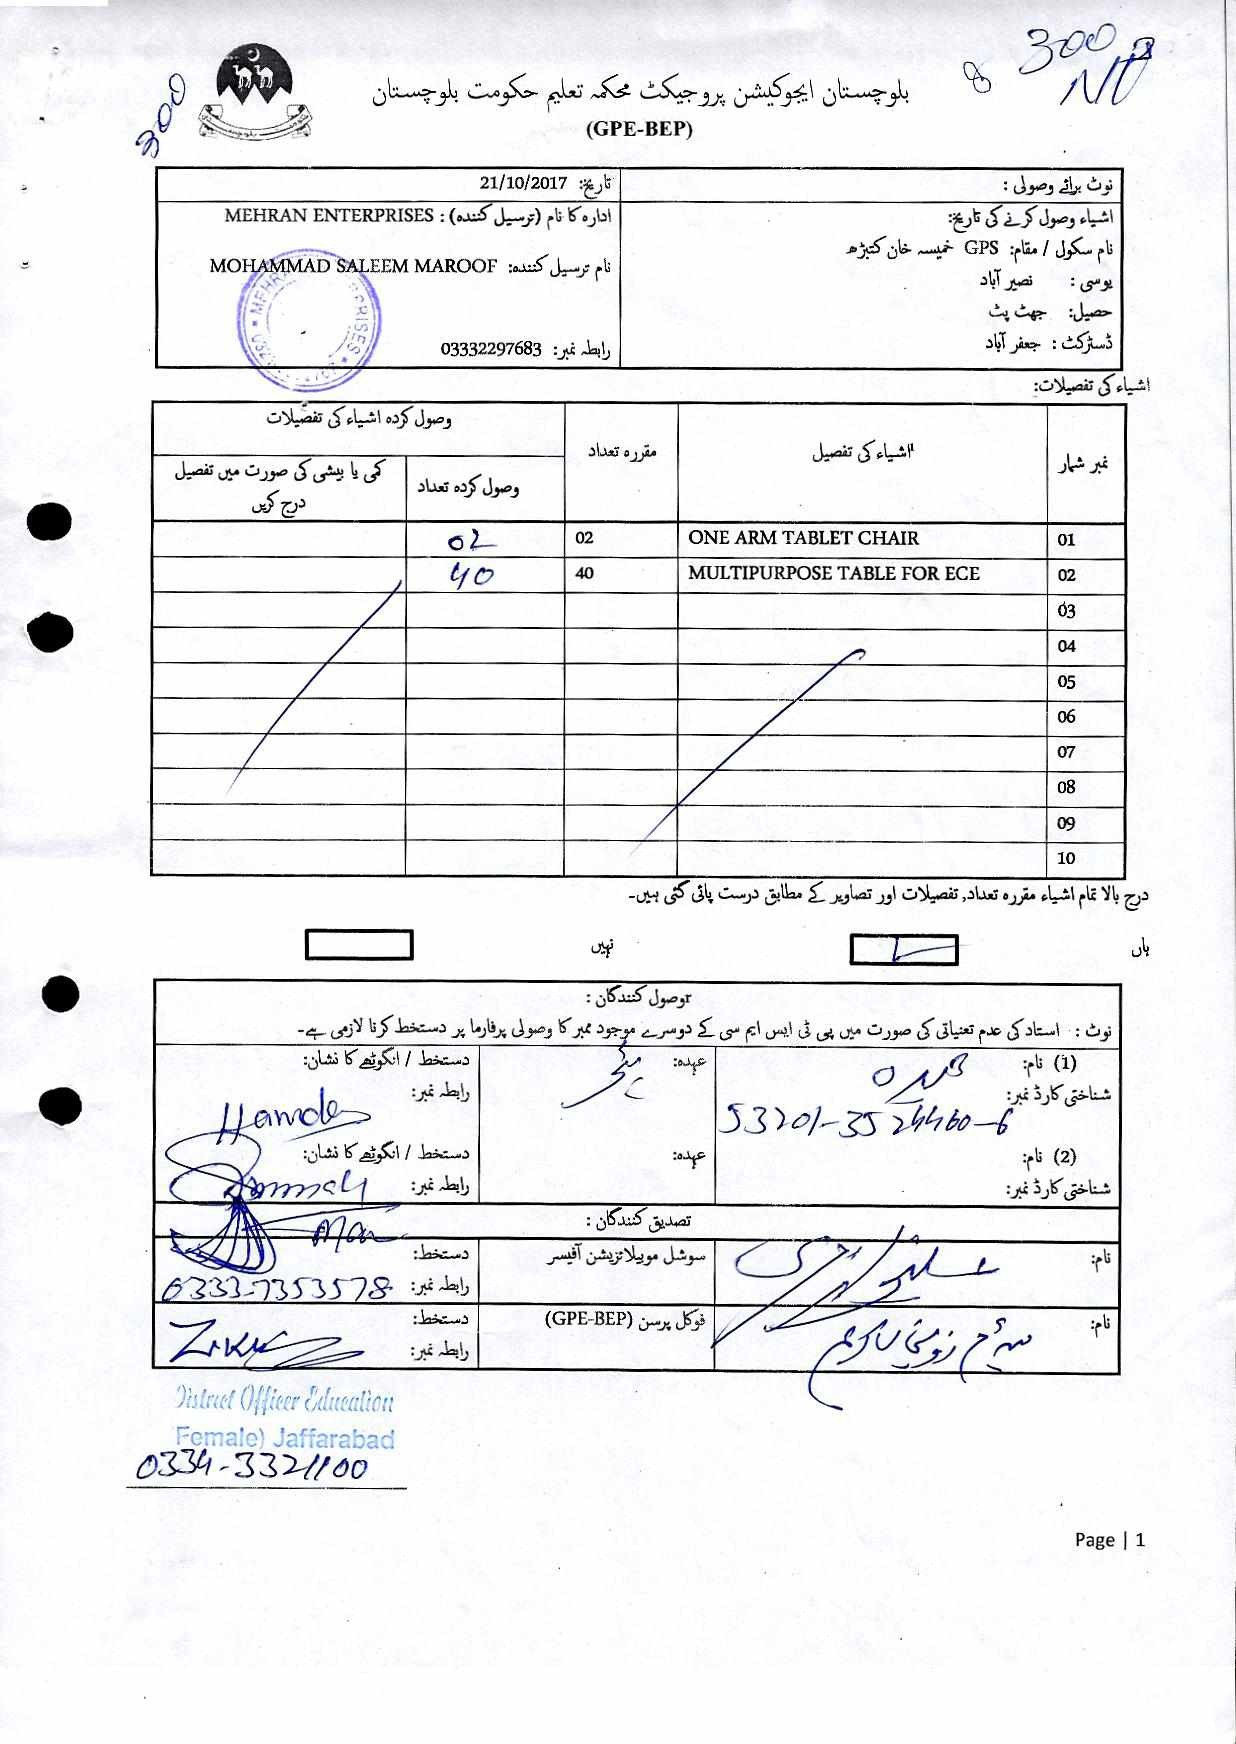 300
8 300
بلوچستان ایجوکیشن پروجیکٹ محکمہ تعلیم حکومت بلوچستان
(GPE-BEP)
نوٹ برائے وصولی :
تاریخ: 21/10/2017
اشیاء وصول کرنے کی تاریخ:
ادارہ کا نام (ترسیل کنندہ) : MEHRAN ENTERPRISES
نام سکول / مقام: GPS خمیسہ خان کتبڑھ
نام ترسیل کنندہ: MOHAMMAD SALEEM MAROOF
یوسی : نصیر آباد
حصیل: جھٹ پٹ
ڈسٹرکٹ : جعفر آباد
رابطہ نمبر: 03332297683
اشیاء کی تفصیلات:
نمبر شمار
اشیاء کی تفصیل
مقررہ تعداد
وصول کردہ اشیاء کی تفصیلات
وصول کردہ تعداد
کمی یا بیشی کی صورت میں تفصیل
درج کریں
01 ONE ARM TABLET CHAIR 02 02
02 MULTIPURPOSE TABLE FOR ECE 40 40
03
04
05
06
07
08
09
10
درج بالا تمام اشیاء مقررہ تعداد, تفصیلات اور تصاویر کے مطابق درست پائی گئی ہیں۔
ہاں
نہیں
وصول کنندگان :
نوٹ : استاد کی عدم تعنیاتی کی صورت میں پی ٹی ایس ایم سی کے دوسرے موجود ممبر کا وصولی پرفارما پر دستخط کرنا لازمی ہے۔
(1) نام:
عہدہ:
دستخط / انگوٹھے کا نشان:
شناختی کارڈ نمبر:
53201-3524460-6
رابطہ نمبر:
(2) نام:
عہدہ:
دستخط / انگوٹھے کا نشان:
شناختی کارڈ نمبر:
رابطہ نمبر:
تصدیق کنندگان :
نام:
سوشل موبیلائزیشن آفیسر
دستخط:
رابطہ نمبر: 0333-7353578
نام:
فوکل پرسن (GPE-BEP)
دستخط:
رابطہ نمبر:
District Officer Education
Female) Jaffarabad
0334-3321100
Page | 1